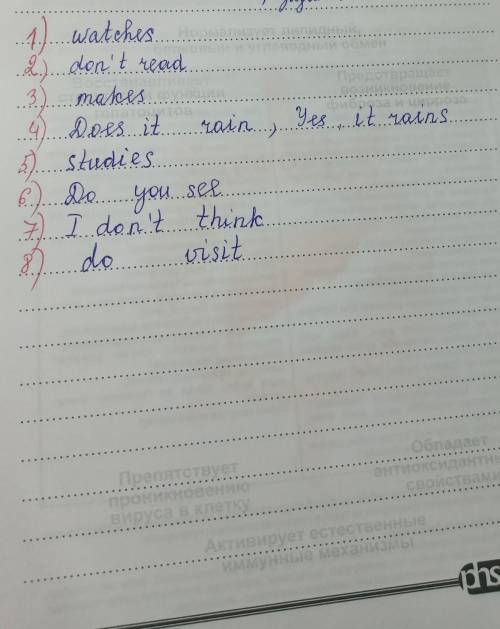 1) watches
2) don't read
3) makes
4) Does it rain, Yes, it rains
5) studies
6) Do you see
7) I don't think
8) do visit
Нормализует липидный,
белковый и углеводный обмен
Восстанавливает
функции
гепатоцитов
Предотвращает
возникновение
фиброза и цирроза
Препятствует
проникновению
вируса в клетку
Обладает
антиоксидантны
свойствами
Активирует естественные
иммунные механизмы
phs